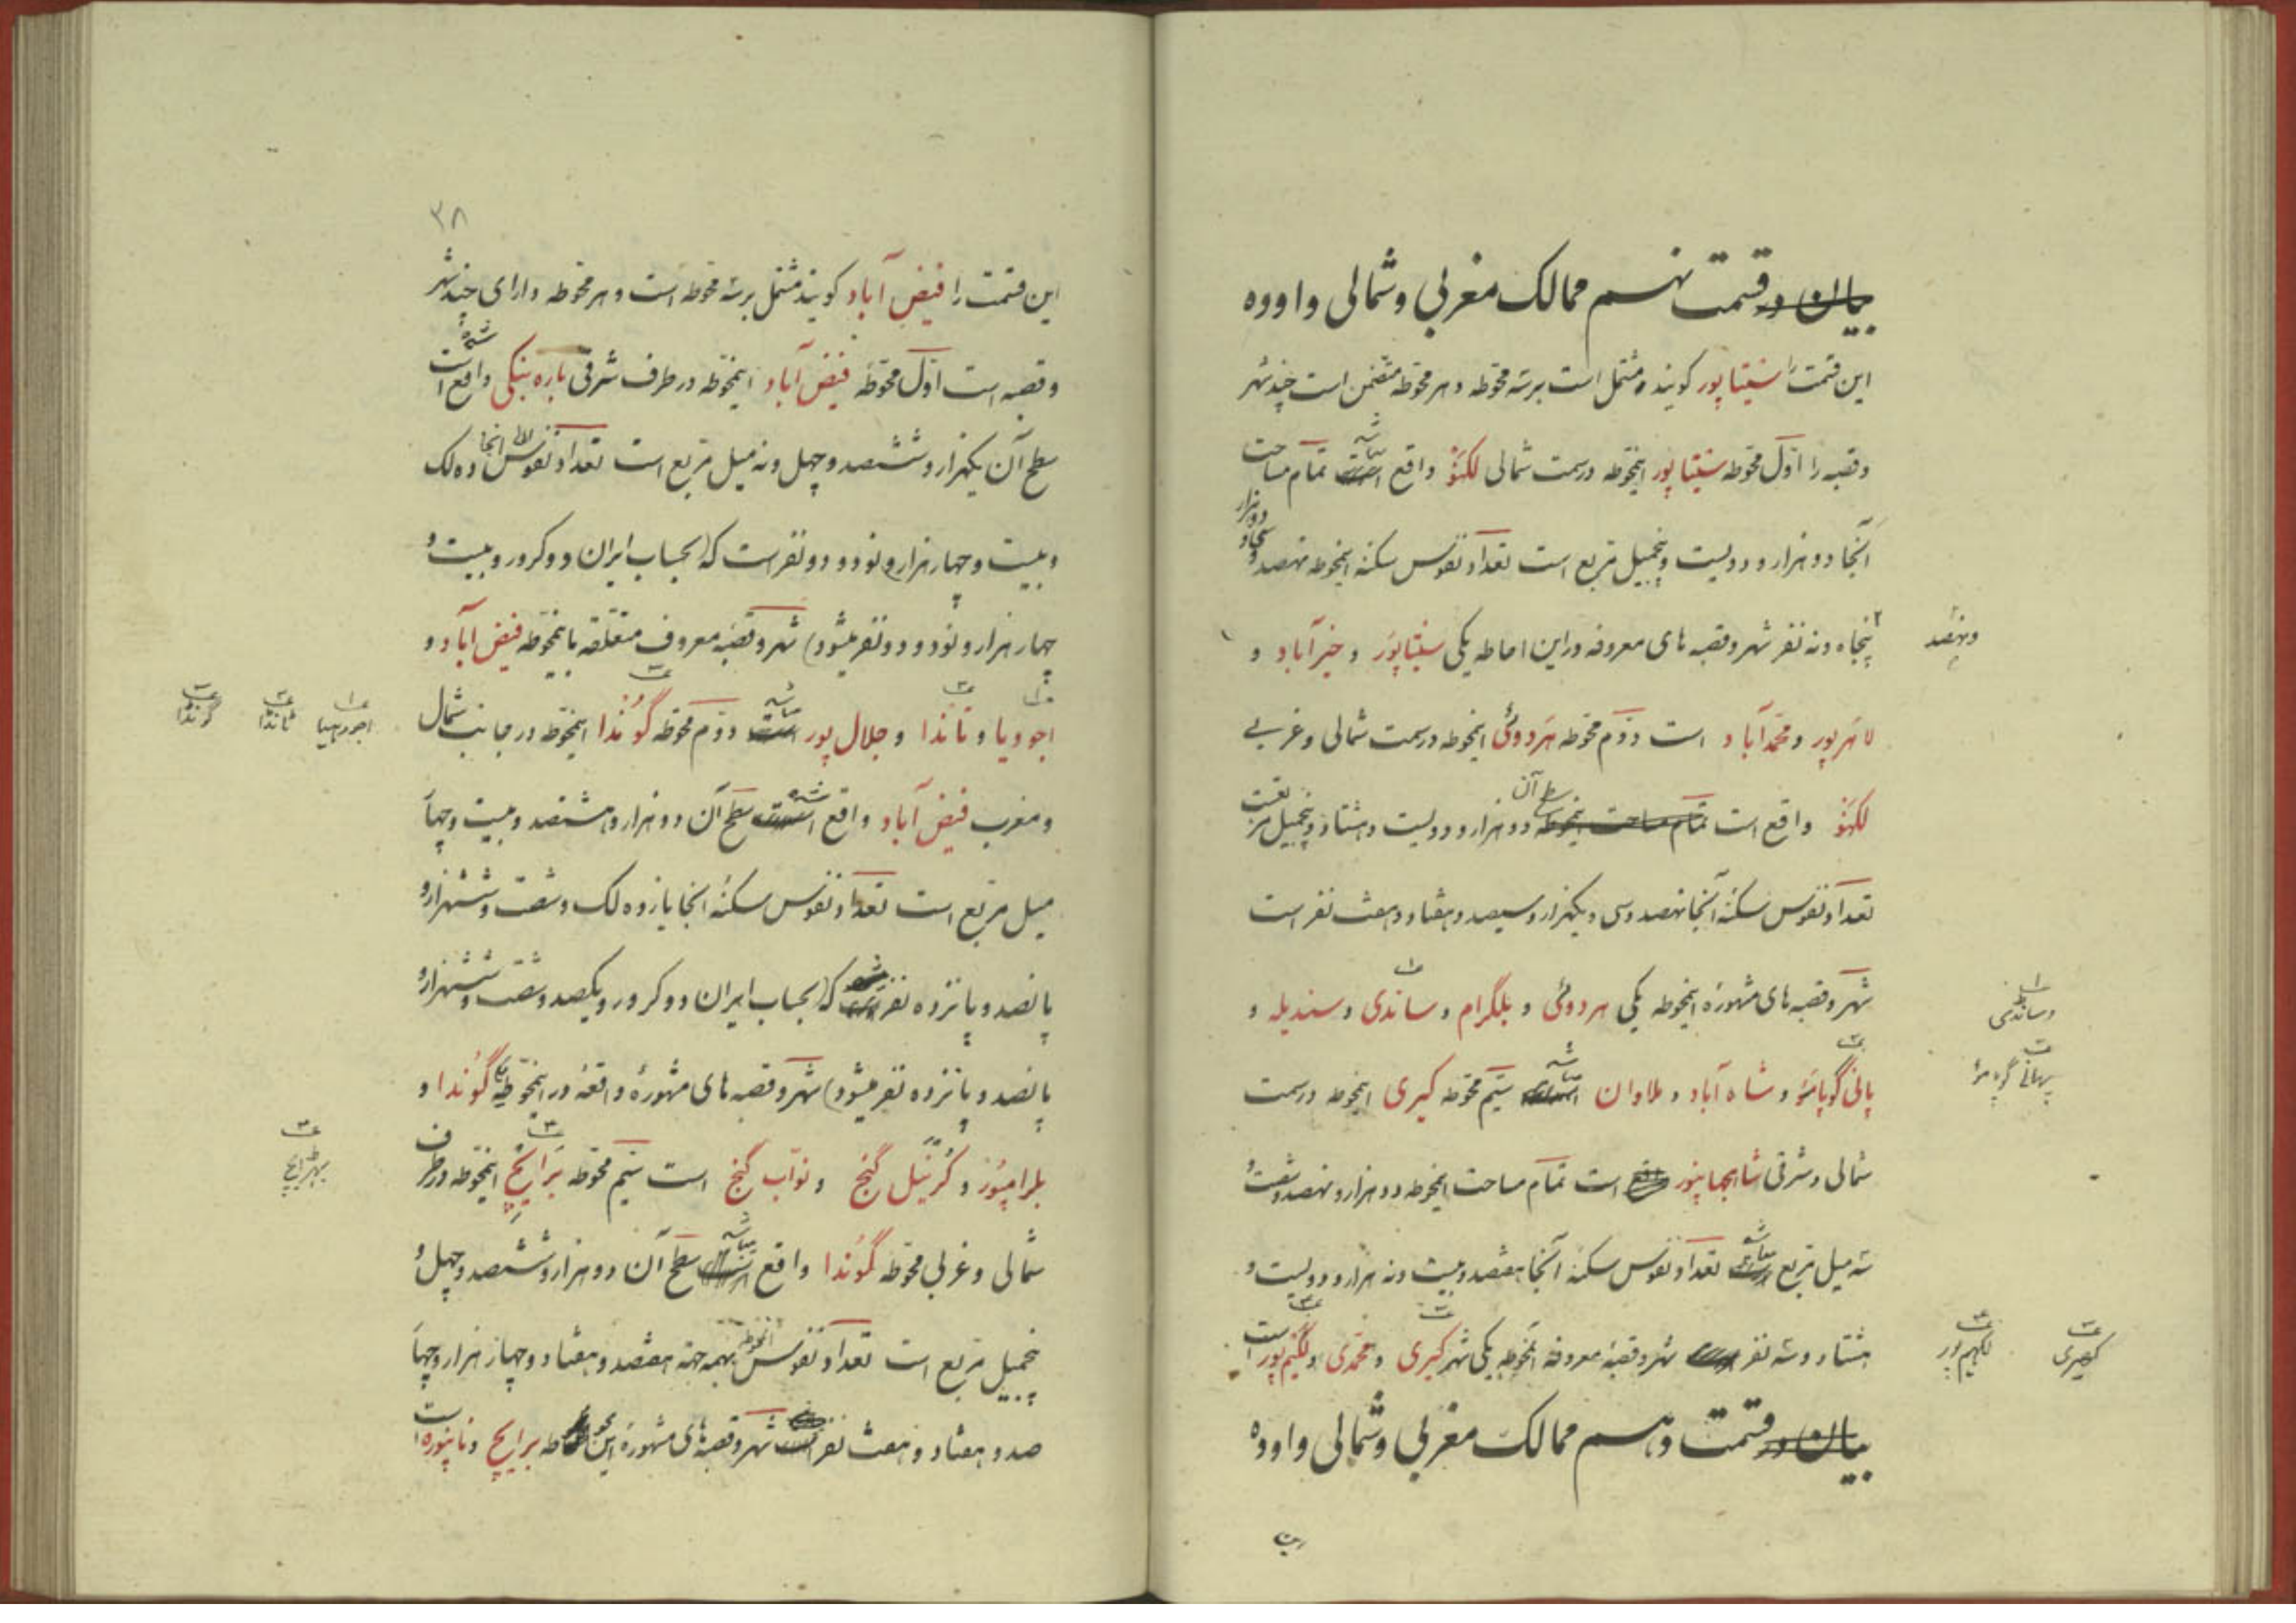 بیان در قسمت نهم ممالک مغربی وشمالی و اووده
این قسمت را سیتاپور کویند و مشتمل است برسه محوطه و هر محوطه متضمن است چند شهر
وقصبه را اوّل محوطه سیتاپور اینمحوطه در سمت شمالی لکهنؤ واقع است میباشد تمام مساحت
آنجا دو هزار و دویست و پنجمیل مربع است تعداد نفوس سکنه اینمحوطه نهصد و پنجاه و دو هزار
ونهصد
پنجاه و نه نفر شهر و قصبه های معروفه در این احاطه یکی سیتاپور و خیرآباد و
لاهرپور و محمدآباد است دوّم محوطه هردوئی اینمحوطه در سمت شمالی و غربی
لکهنؤ واقع است تمام مساحت اینمحوطه سطح آن دو هزار و دویست و هشتاد و پنجمیل مربعست
تعداد نفوس سکنه آنجا نهصد و سی و یکهزار و سیصد و هفتاد و هفت نفر است
شهر و قصبه های مشهوره اینمحوطه یکی هردوئی و بلگرام و ساندی و سندیله و
وساندی
پالی گوپامئو و شاه آباد و ملاوان است میباشد سیّم محوطه کیری اینمحوطه در سمت
پهانی گوپامؤ
شمالی و شرقی شاهجهانپور واقع است تمام مساحت اینمحوطه دو هزار و نهصد و شصت و
سه میل مربع است میباشد تعداد نفوس سکنه آنجا هفتصد و بیست و نه هزار و دویست و
هشتاد و سه نفر است شهر و قصبه معروفه آنمحوطه یکی شهر کیری و محمدی و لکیم پور است
کهیری
لکهیم پور
بیان در قسمت دهم ممالک مغربی وشمالی و اووده
این
۳۸
این قسمت را فیض آباد کویند مشتمل برسه محوطه است و هر محوطه دارای چند شهر
وقصبه است اوّل محوطه فیض آباد اینمحوطه در طرف شرقی باره بنکی واقع است شده
سطح آن یکهزار و ششصد و چهل و نه میل مربع است تعداد نفوس اهالی انجا ده لک
و بیست و چهار هزار و نود و دو نفر است که (بحساب ایران دو کرور و بیست و
چهار هزار و نود و دو نفر میشود) شهر و قصبه معروف متعلقه باینمحوطه فیض آباد و
اجودیا و تاندا و جلال پور است میباشد دوّم محوطه گوندا اینمحوطه در جانب شمال
اجودهیا
ٹانڈا
گونڈا
و مغرب فیض آباد واقع است شده سطح آن دو هزار و هشتصد و بیست و چهار
میل مربع است تعداد نفوس سکنه انجا یازده لک و شصت و ششهزار و
پانصد و پانزده نفر است که (بحساب ایران دو کرور و یکصد و شصت و ششهزار و
پانصد و پانزده نفر میشود) شهر و قصبه های مشهوره واقعه در اینمحوطه یکی گوندا و
بلرامپور و کرنیل گنج و نوّاب گنج است سیّم محوطه برایچ اینمحوطه در طرف
بهڑایچ
شمالی و غربی محوطه گوندا واقع است میباشد سطح آن دو هزار و ششصد و چهل و
پنجمیل مربع است تعداد نفوس آنمحوطه بهمه جهته هفتصد و هفتاد و چهار هزار و چهار
صد و هفتاد و هفت نفر است شهر و قصبه های مشهوره این محوطه برایچ و نانپوره است